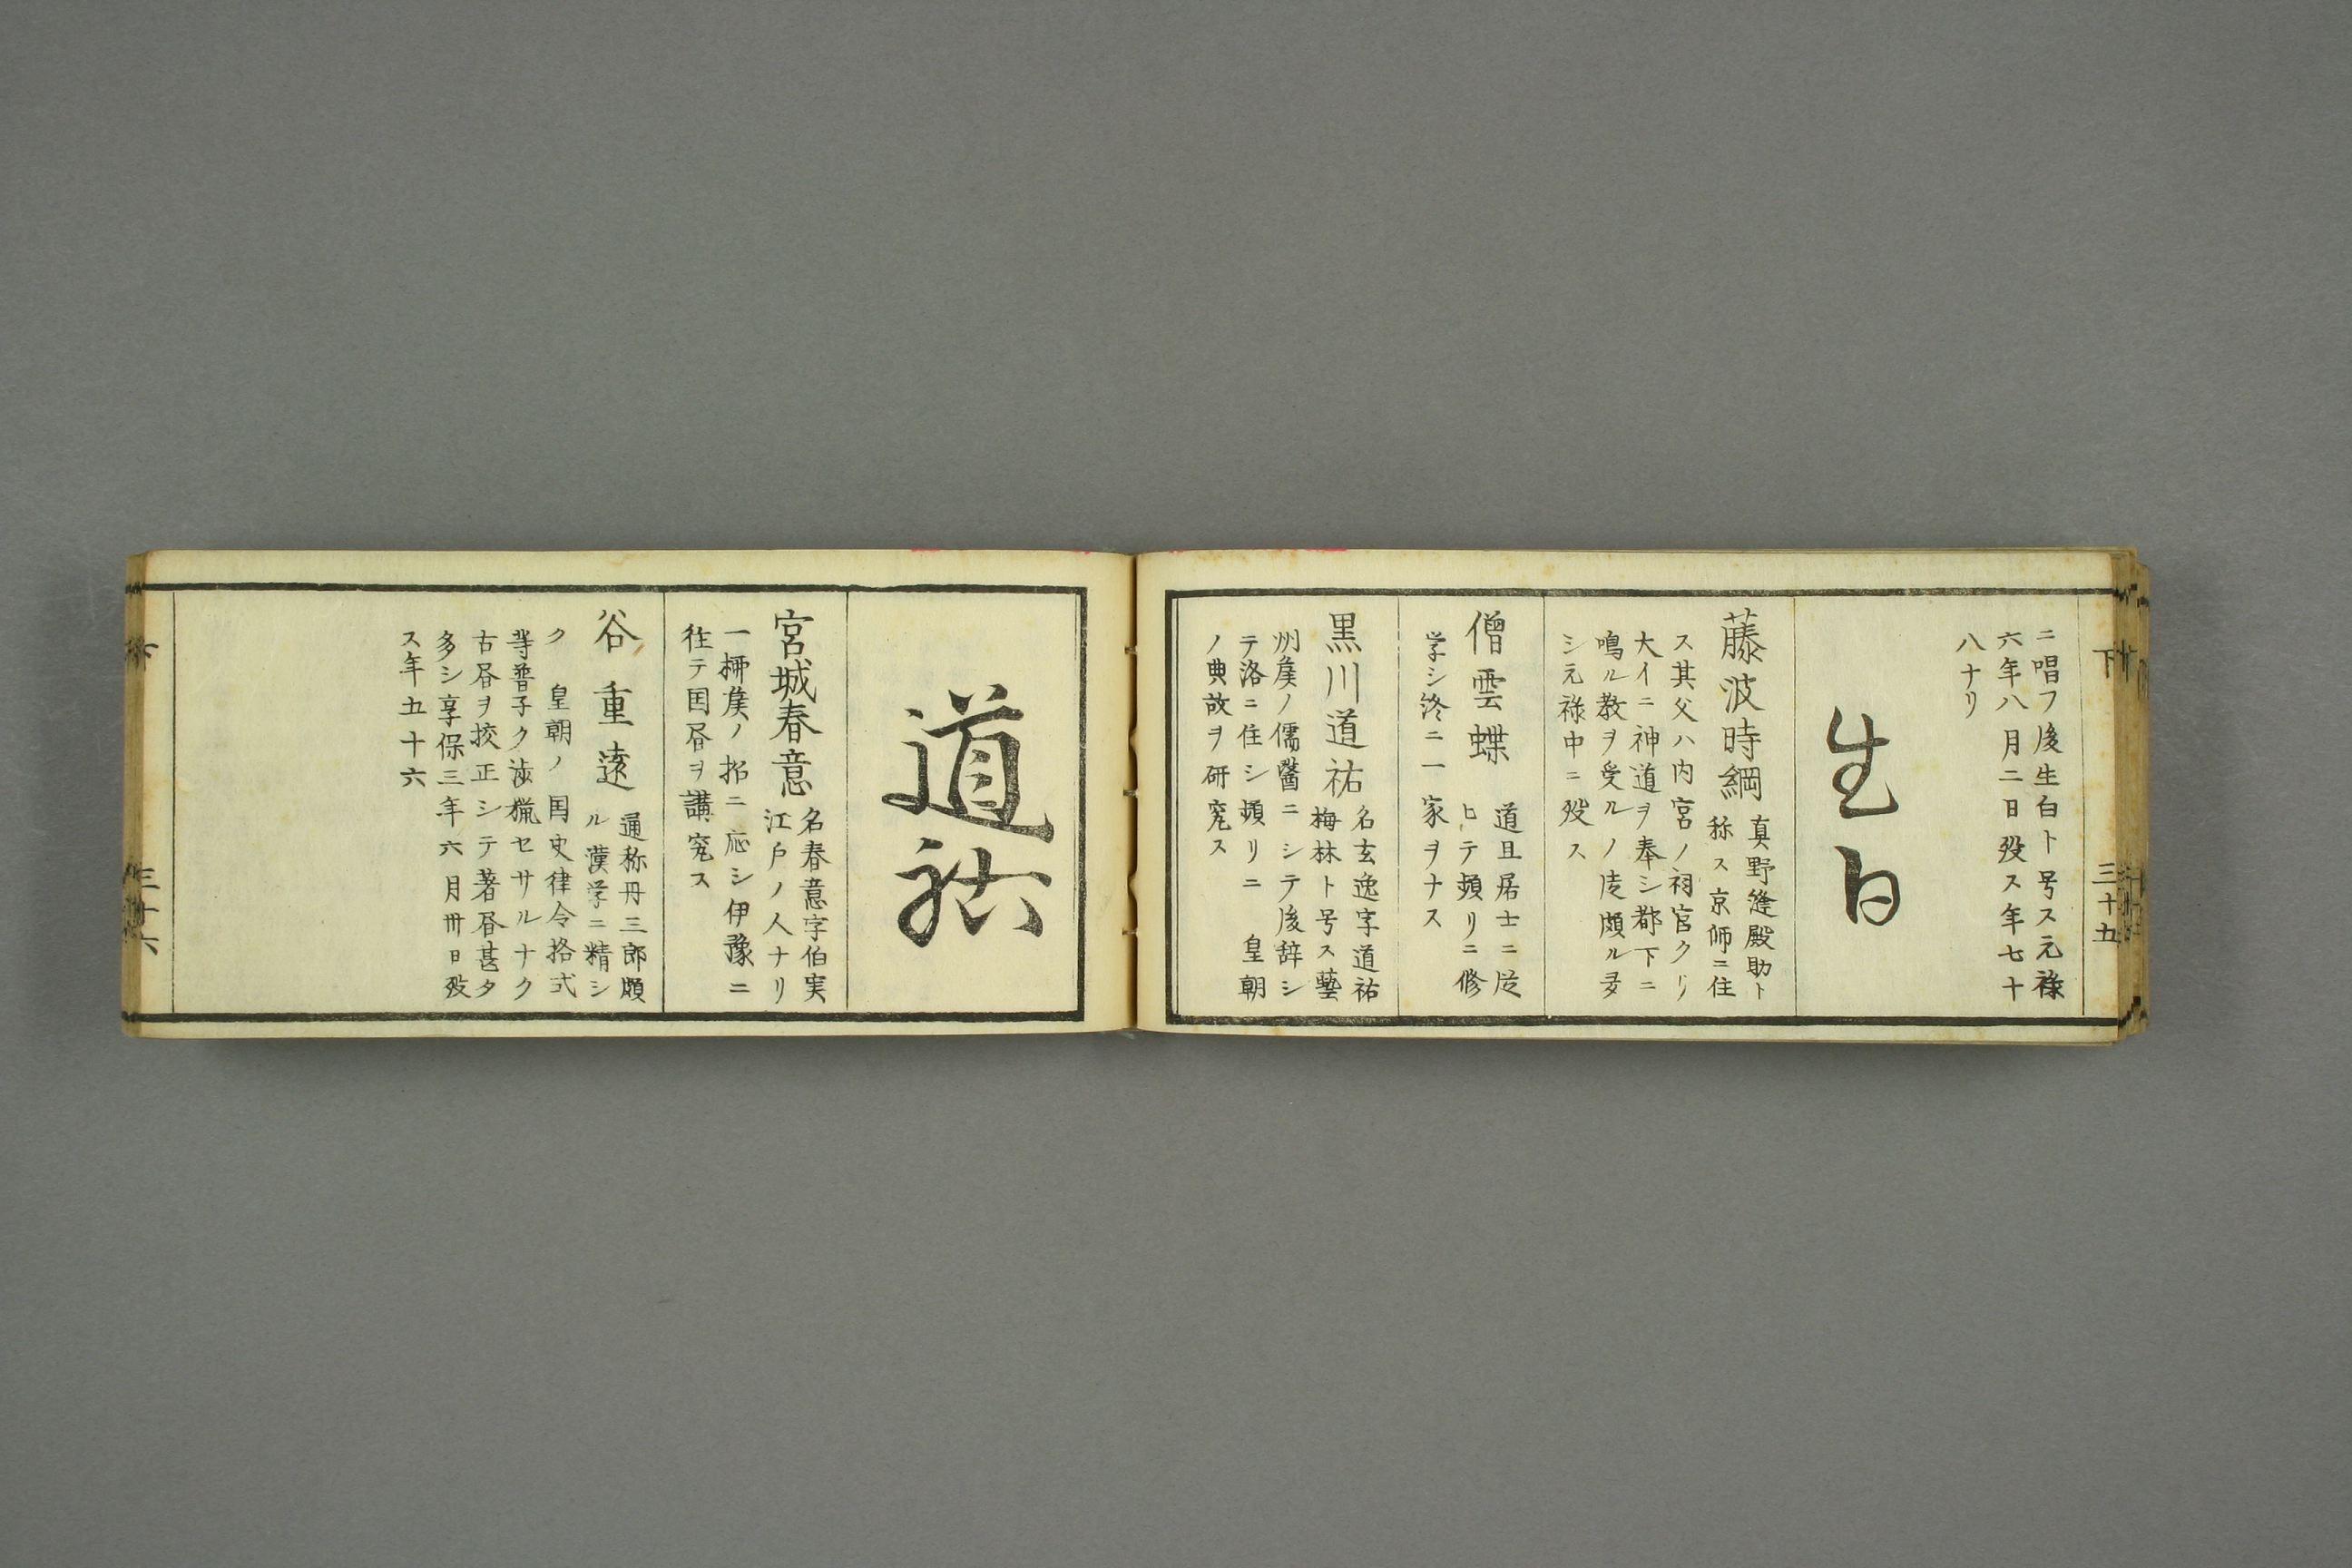 下
三十五
ニ唱フ後生白ト号ス元祿
六年八月二日歿ス年七十
八ナリ
生白
藤波時綱
真野縫殿助ト
称ス京師ニ住
ス其父ハ内宮ノ祠官クリ
大イニ神道ヲ奉シ都下ニ
鳴ル教ヲ受ルノ徒頗ル多
シ元祿中ニ歿ス
僧雲蝶
道旦居士ニ従
ヒテ頻リニ修
学シ終ニ一家ヲナス
黒川道祐
名玄逸字道祐
梅林ト号ス藝
州矦ノ儒醫ニシテ後辞シ
テ洛ニ住シ頻リニ 皇朝
ノ典故ヲ研究ス
道祐
宮城春意
名春意字伯実
江戸ノ人ナリ
一栁矦ノ招ニ応シ伊豫ニ
往テ囯昼ヲ講究ス
谷重遠
通称丹三郎頗
ル漢学ニ精シ
ク 皇朝ノ囯史律令格式
等普子ク渉猟セサルナク
古昼ヲ挍正シテ著昼甚タ
多シ享保三年六月卅日歿
ス年五十六
下
三十六